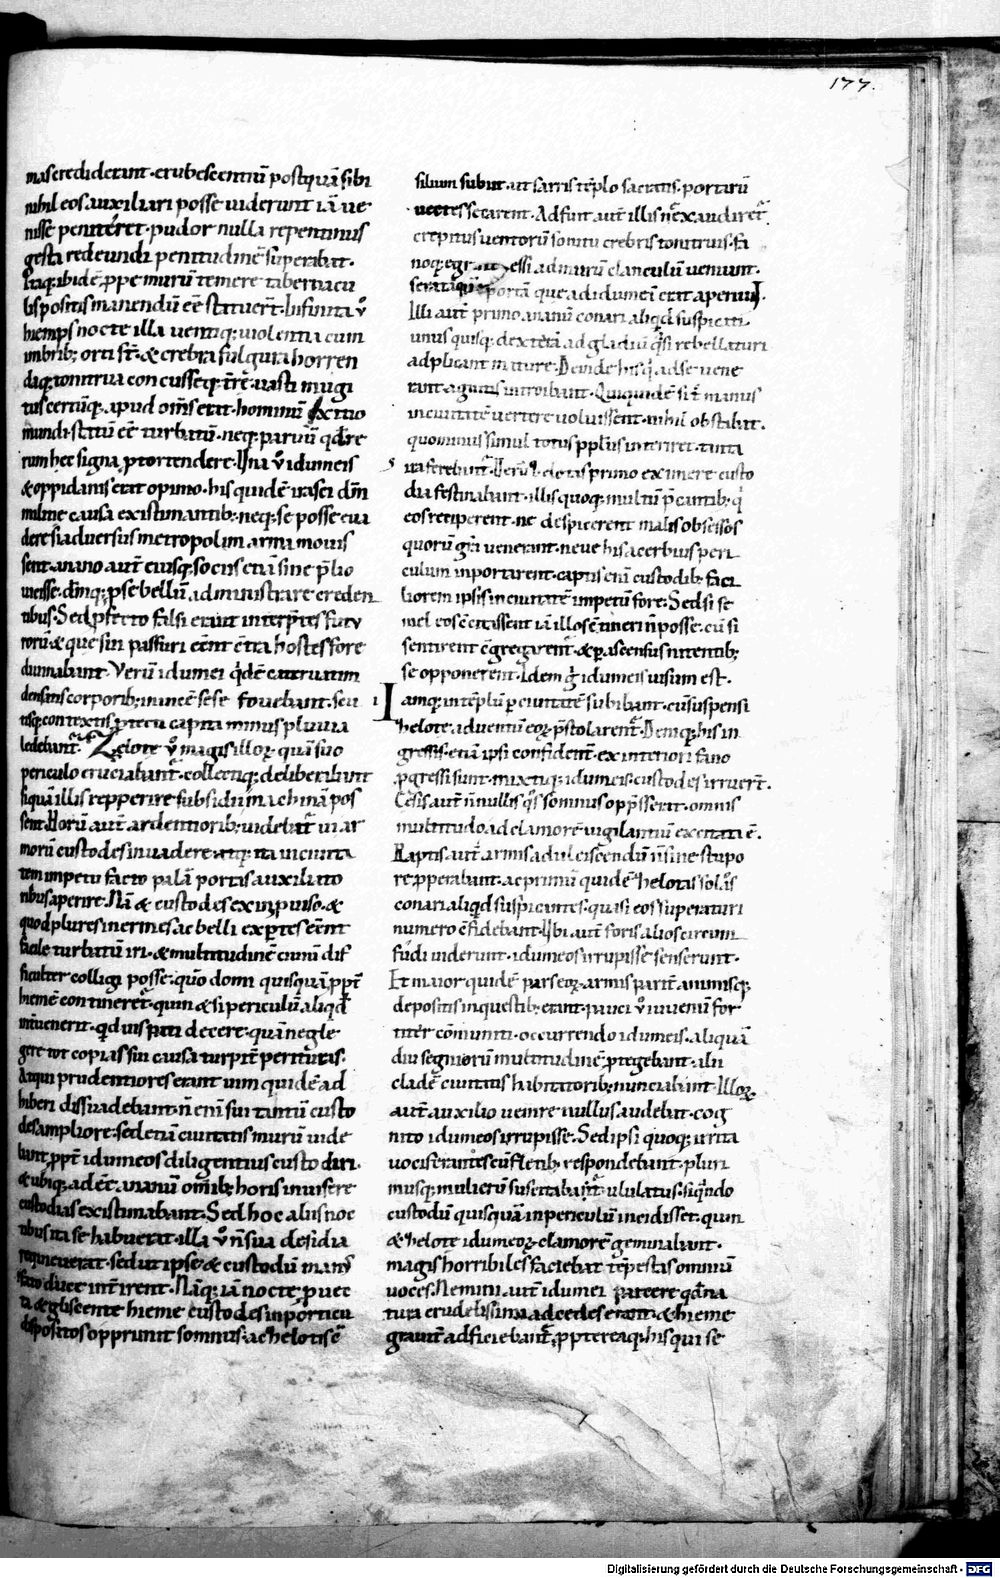 177.
mas crediderunt. erubescentiū postquā sibi
nihil eos auxiliari posse uiderunt iā ue
nisse peniteret. pudor nulla repentinus
gesta redeundi penitudinē superabat.
Itaq; ibidē ꝓpe murū temere tabernacu
lis positis manendū eē statuert̄. Infinita v̊
hiemps nocte illa uentiq; uiolenti a cum
imbrib; orti st̄. & crebra fulgura horren
daq; tonitrua concusseq; t̄rę uasti mugi
tus certūq; apud om̄s erat. hominū exitio
mundi statū eē turbatū. neq; paruū qd̄ re
rum hec signa ꝓtortendere. Una v̊ idumeis
& oppidanis erat opinio. his quidē irasci dm̄
militie causa existimantib; neq; se posse eua
dere si aduersus metropolim arma mouis
sent. anano aut̄ eiusq; sociis etiā sine p̄lio
uicisse. dm̄q; ꝓ se bellū administrare creden
tibus. Sed ꝓfecto falsi erant interp̄tes futu
rorū & que sui passuri eēnt ea hostes fore
diuinabant. Verū idumei qd̄ē
densatis corporib; inuicē sese fouebant. scu
tisq; contextis ꝓtecti capita minus pluuia
ledebant̄. Zelote v̊ magis illoꝝ quā suo
periculo cruciabant̄. collectiq; deliberabant
siquā illis repperire subsidii machinā pos
sent. Horū aut̄ ardentiorib; uidebat̄ ui ar
morū custodes inuadere. atq; ita
tem impetu facto palā portis auxiliato
ribus aperire. Nā & custodes ex inꝓuiso. &
quod plures inermes ac belli exꝑtes eēnt
facile turbatū iri. & multitudinē ciuiū dif
ficulter colligi posse. quō domi quisquā ꝓpt̄
hiemē contineret̄. quin & si periculū aliqd̄
interuenerit. qd̄uis pati decere. quā negle
gere tot copias sui causa turpit̄ perituras.
Atqui prudentiores erant uim quidē ad
hiberi dissuadebant. n̄ enī sui tantū custo
des ampliore. sed etiā ciuitatis murū uide
bant ꝓpt̄ idumeos diligentius custodiri.
& ubiq; adeē ananū om̄ib; horis inuisere
custodias existimabant. Sed hoc aliis noc
tibus ita se habuerat. illa v̊ n̄ sua desidia
requieuerat. sed ut ipse & custodū man
fato duce interirent. Nāq; iā nocte ꝓuec
ta & gliscente hieme custodes in porticu
dispositos opprimit somnus. ac helotis
silium subiit. ut sarris tēplo sacratis. portarū
uectes secarent. Adfuit aut̄ illis n̄ exaudiret̄
crepitus uentorū sonitu crebris tonitruis. fa
noq; egressi ad murū clanculū ueniunt.
serataq; portā que ad idumeū erat aperiunt.
Illi aut̄ primo ananū conari aliqd̄ suspicati
unus quisq; dexterā ad gladiū q̄si rebellaturi
adplicant mature. Deinde hisq; ad se uene
rant agnitis introibant. Qui quidē si t̄ manus
in ciuitatē uertere uoluissent. nihil obstabat.
quominus simul totus ppłus interiret. tanta
ira ferebant̄. Verū de tas primo eximere custo
dia festinabant. illis quoq; multū p̄cantib; q̄
eos reciperent. ne despicerent malis obsessos
quorū gr̄a uenerant. neue his acerbius peri
culum inportarent. captis enī custodib; faci
liorem ipsis in ciuitatē impetū fore. Sed si se
mel eos excitassent iā illos tineri n̄ posse. cū si
sentirent & ꝑ ascensus nitentib;
se opponerent. Idem g̊ idumeis uisum est.
Iamq; in tēplū ꝑ ciuitatē subibant. cū suspensi
helote. aduentū eoꝝ p̄stolarent̄. Demq; his in
gressis. etiā ipsi confident̄. ex interiori fano
ꝓgressi sunt. mixtiq; idumeis. custodes irruert̄.
Cesis aut̄ n̄nullis q̄s somnus opp̄sserat. omnis
multitudo ad clamorē uigilantiū excitata ē.
Raptis aut̄ armis ad ulciscendū n̄ sine stupo
re ꝓperabant. ac primū quidē helotas solos
conari aliqd̄ suspicantes. quasi eos superaturi
numero cfidebant. Ubi aut̄ foris alios circum
fūdi uiderunt. idumeos irrupisse senserunt.
Et maior quidē pars eoꝝ armis parit̄ animisq;
depositis in questib; erant. pauci v̊ iuuenū for
titer cōmuniti. occurrendo idumeis. aliquā
diu segniorū multitudinē ꝓtegebant. alii
cladē ciuitatis habitatorib; nunciabant. Illoꝝ
aut̄ auxilio uenire nullus audebat. cog
nito idumeos irrupisse. Sed ipsi quoq; irrita
uociferantes cū fletib; respondebant. pluri
musq; mulierū suscitabat̄ ululatus. siq̄ndo
custodū quisquā in periculū incidisset. quin
& helote idumeoꝝ clamorē geminabant.
magis horribiles faciebat tēpestas omniū
uoces. Nemini aut̄ idumei parcere qd̄ na
tura crudelissimi ad cedes erant. & hieme
grauit̄ adficiebant̄. ꝓptereaq; his qui se
Digitalisierung gefördert durch die Deutsche Forschungsgemeinschaft - DFG